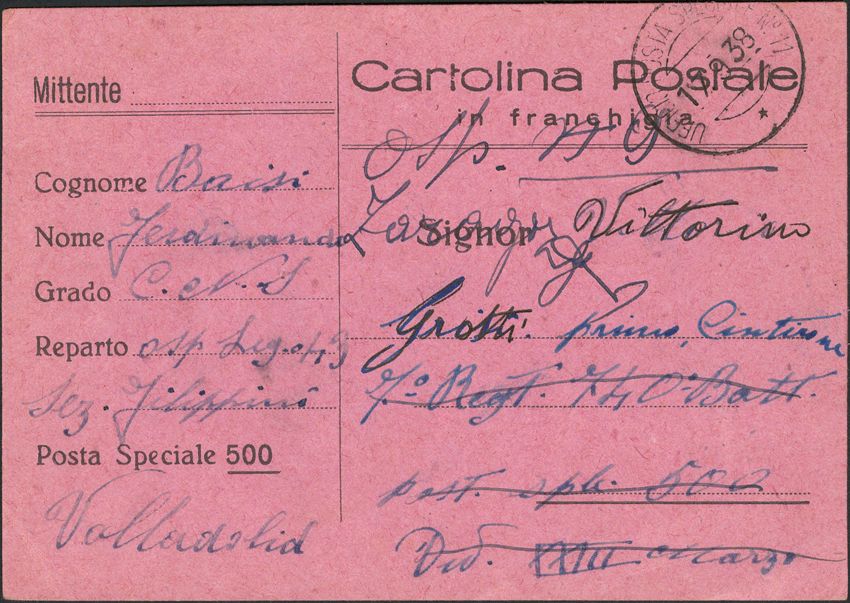 Mittente
Cognome Baisi
Nome Ferdinando
Grado C. N. S
Reparto Osp Leg. 043
Sez. Filippini
Posta Speciale 500
Valladolid
POSTA SPECIALE N. 11
38
Cartolina Postale
in franchigia
Osp.
Signor Vittorino
Grossi. primo, Centurione
7º Regt. 740 Batt.
post. sple. 500
Div. XXIII Marzo